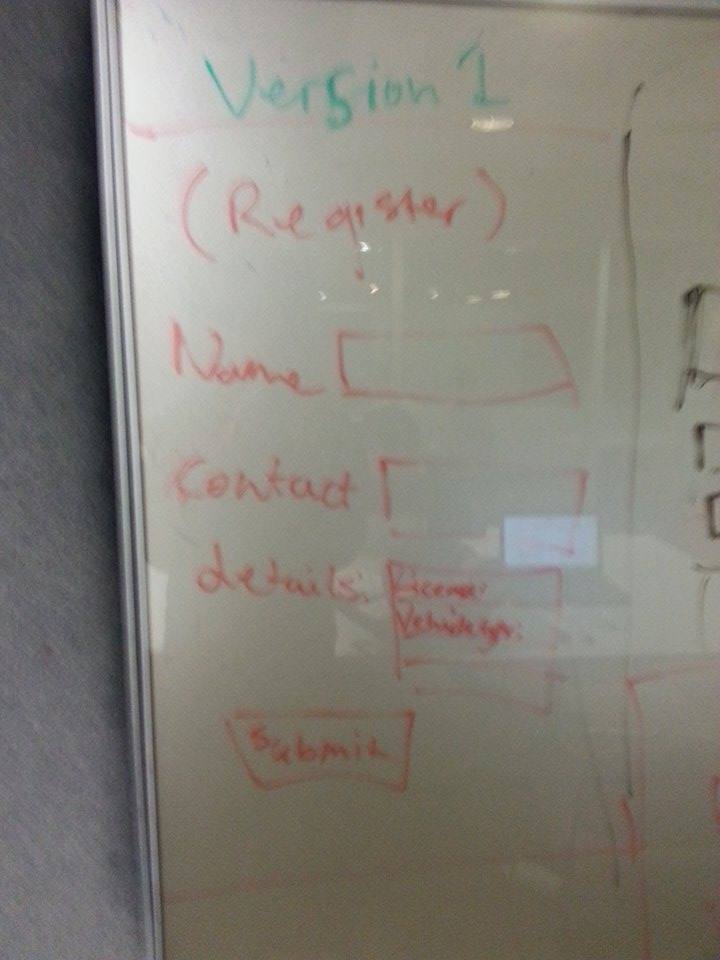 Version 1
(Register)
Name
Contact
details:
License:
Vehicle
Submit